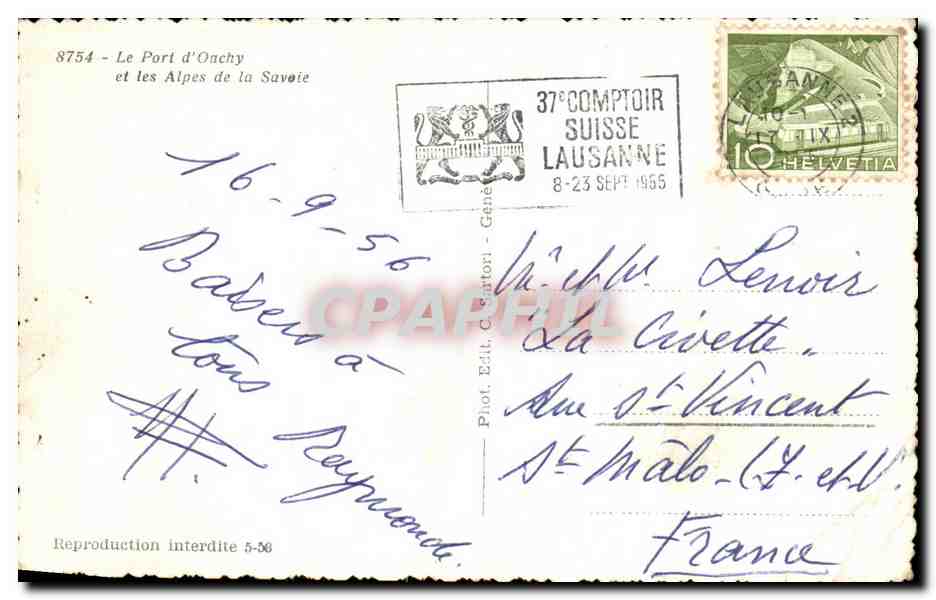 8754 - Le Port d'Ouchy
et les Alpes de la Savoie
37e COMPTOIR
SUISSE
LAUSANNE
8-23 SEPT 1956
LAUSANNE 2
10-1
17 IX
10 HELVETIA
16-9-56
Baisers à
tous
Raymonde.
Phot. Edit. C. Sartori - Genève
Mr et Me Lenoir
"La Civette"
Rue St Vincent
St Malo - (I. et V.
France
Reproduction interdite 5-56
CPAPHIL